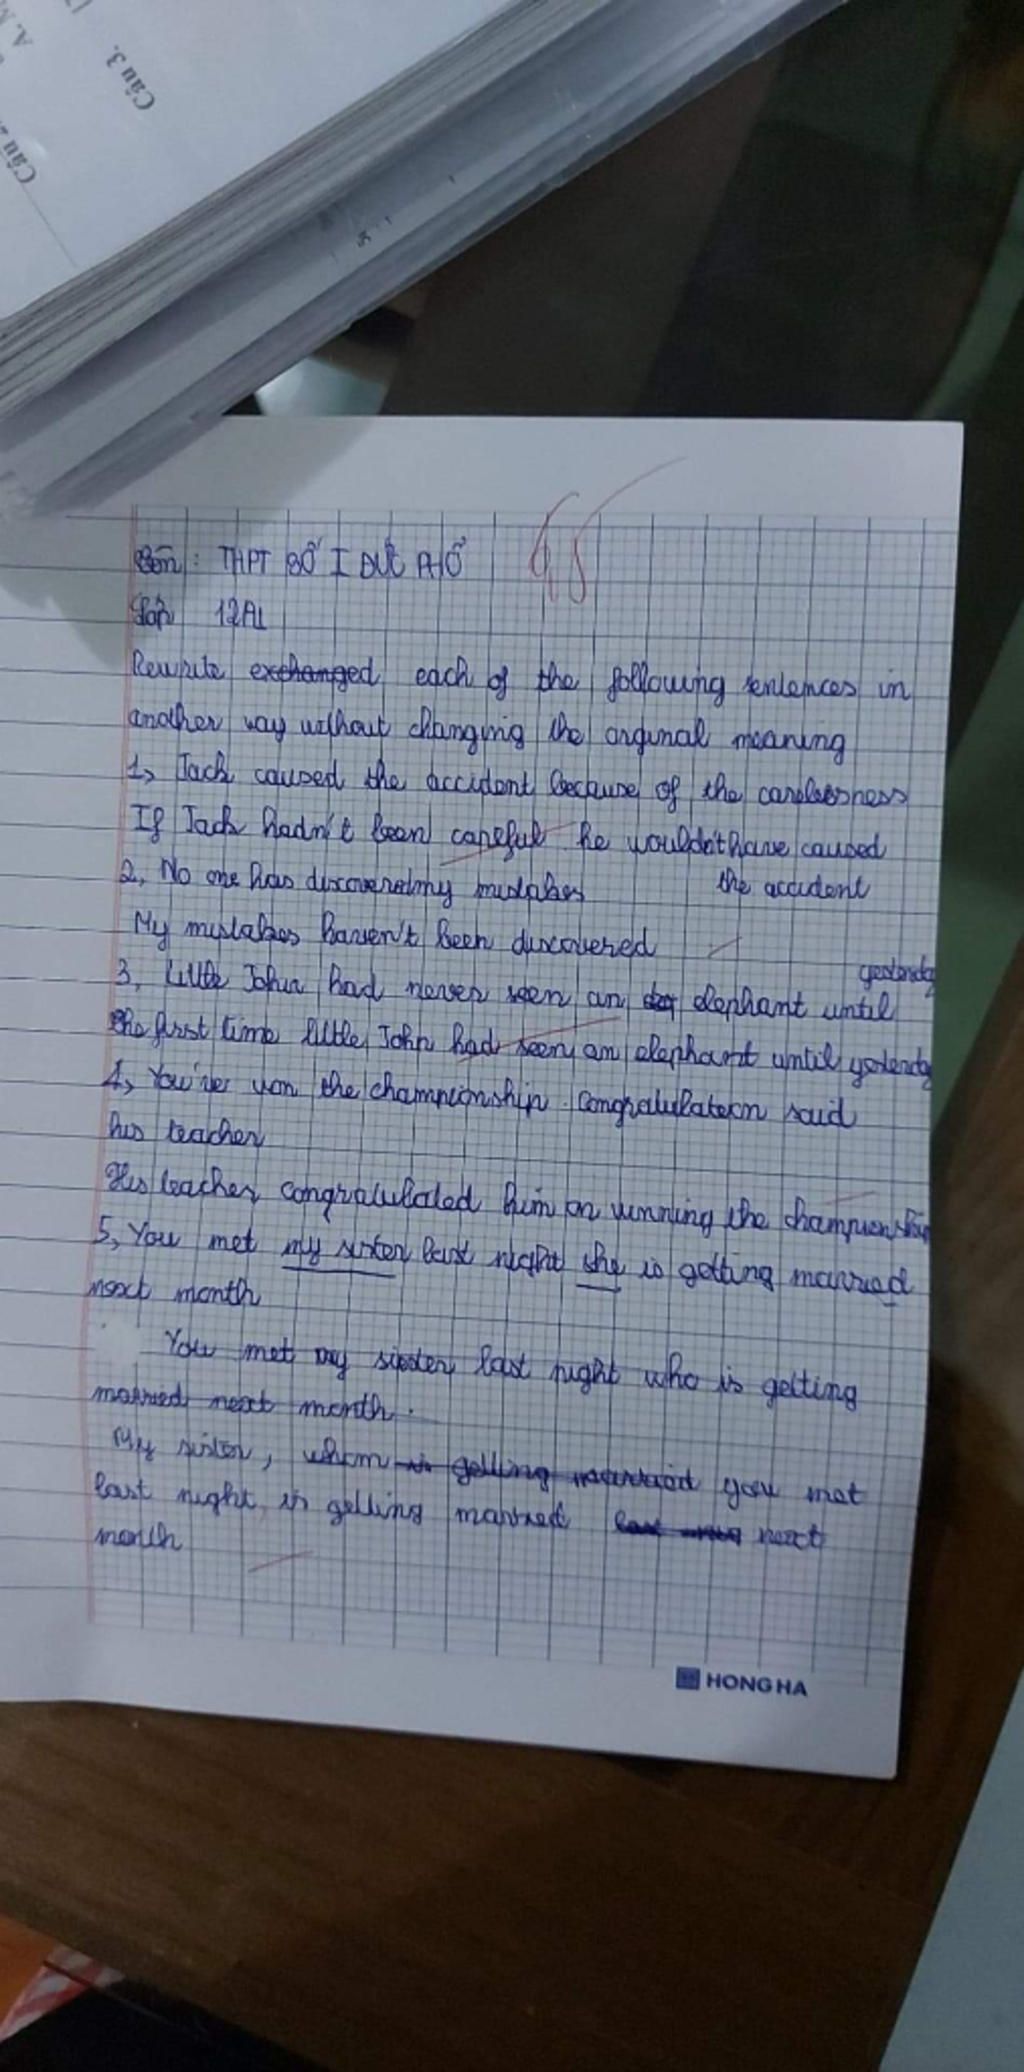 Câu 3.
Câu 2.
A.
9,5
Trường: THPT SỐ I ĐỨC PHỔ
Lớp 12A1
Rewrite exchanged each of the following sentences in
another way without changing the orginal meaning
1, Jack caused the accident because of the carelessness
If Jack hadn't been careful he wouldn't have caused
the accident
2, No one has discovered my mistakes
My mistakes haven't been discovered
3, Little John had never seen an elephant until
yesterday
The first time little John had seen an elephant until yesterday
4, You've won the championship. Congratulation said
his teacher
His teacher congratulated him on winning the championship
5, You met my sister last night she is getting married
next month
You met my sister last night who is getting
married next month.
My sister, whom is getting married you met
last night, is getting married last next
month
HONG HA